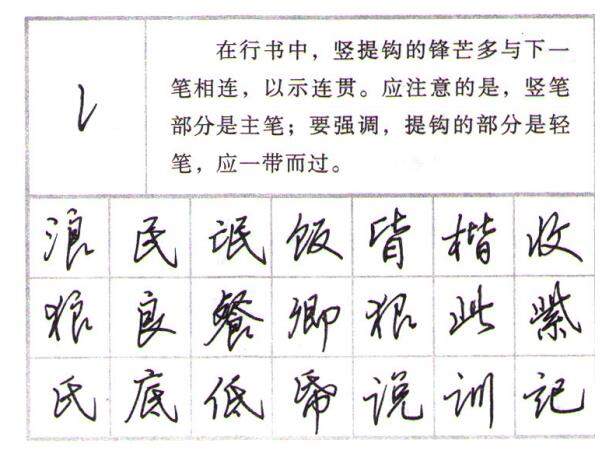 在行书中，竖提钩的锋芒多与下一
笔相连，以示连贯。应注意的是，竖笔
部分是主笔；要强调，提钩的部分是轻
笔，应一带而过。
浪 民 泯 饭 皆 楷 收
狼 良 餐 卿 狠 此 紫
氏 底 低 昏 说 训 记